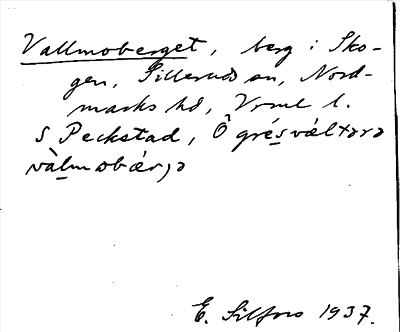 Vallmoberget, berg i Sko-
gen, Silleruds sn, Nord-
marks hd, Vrml l.
S Peckstad, Ö grésvältara
vàlmobærja
E. Silfors 1937.